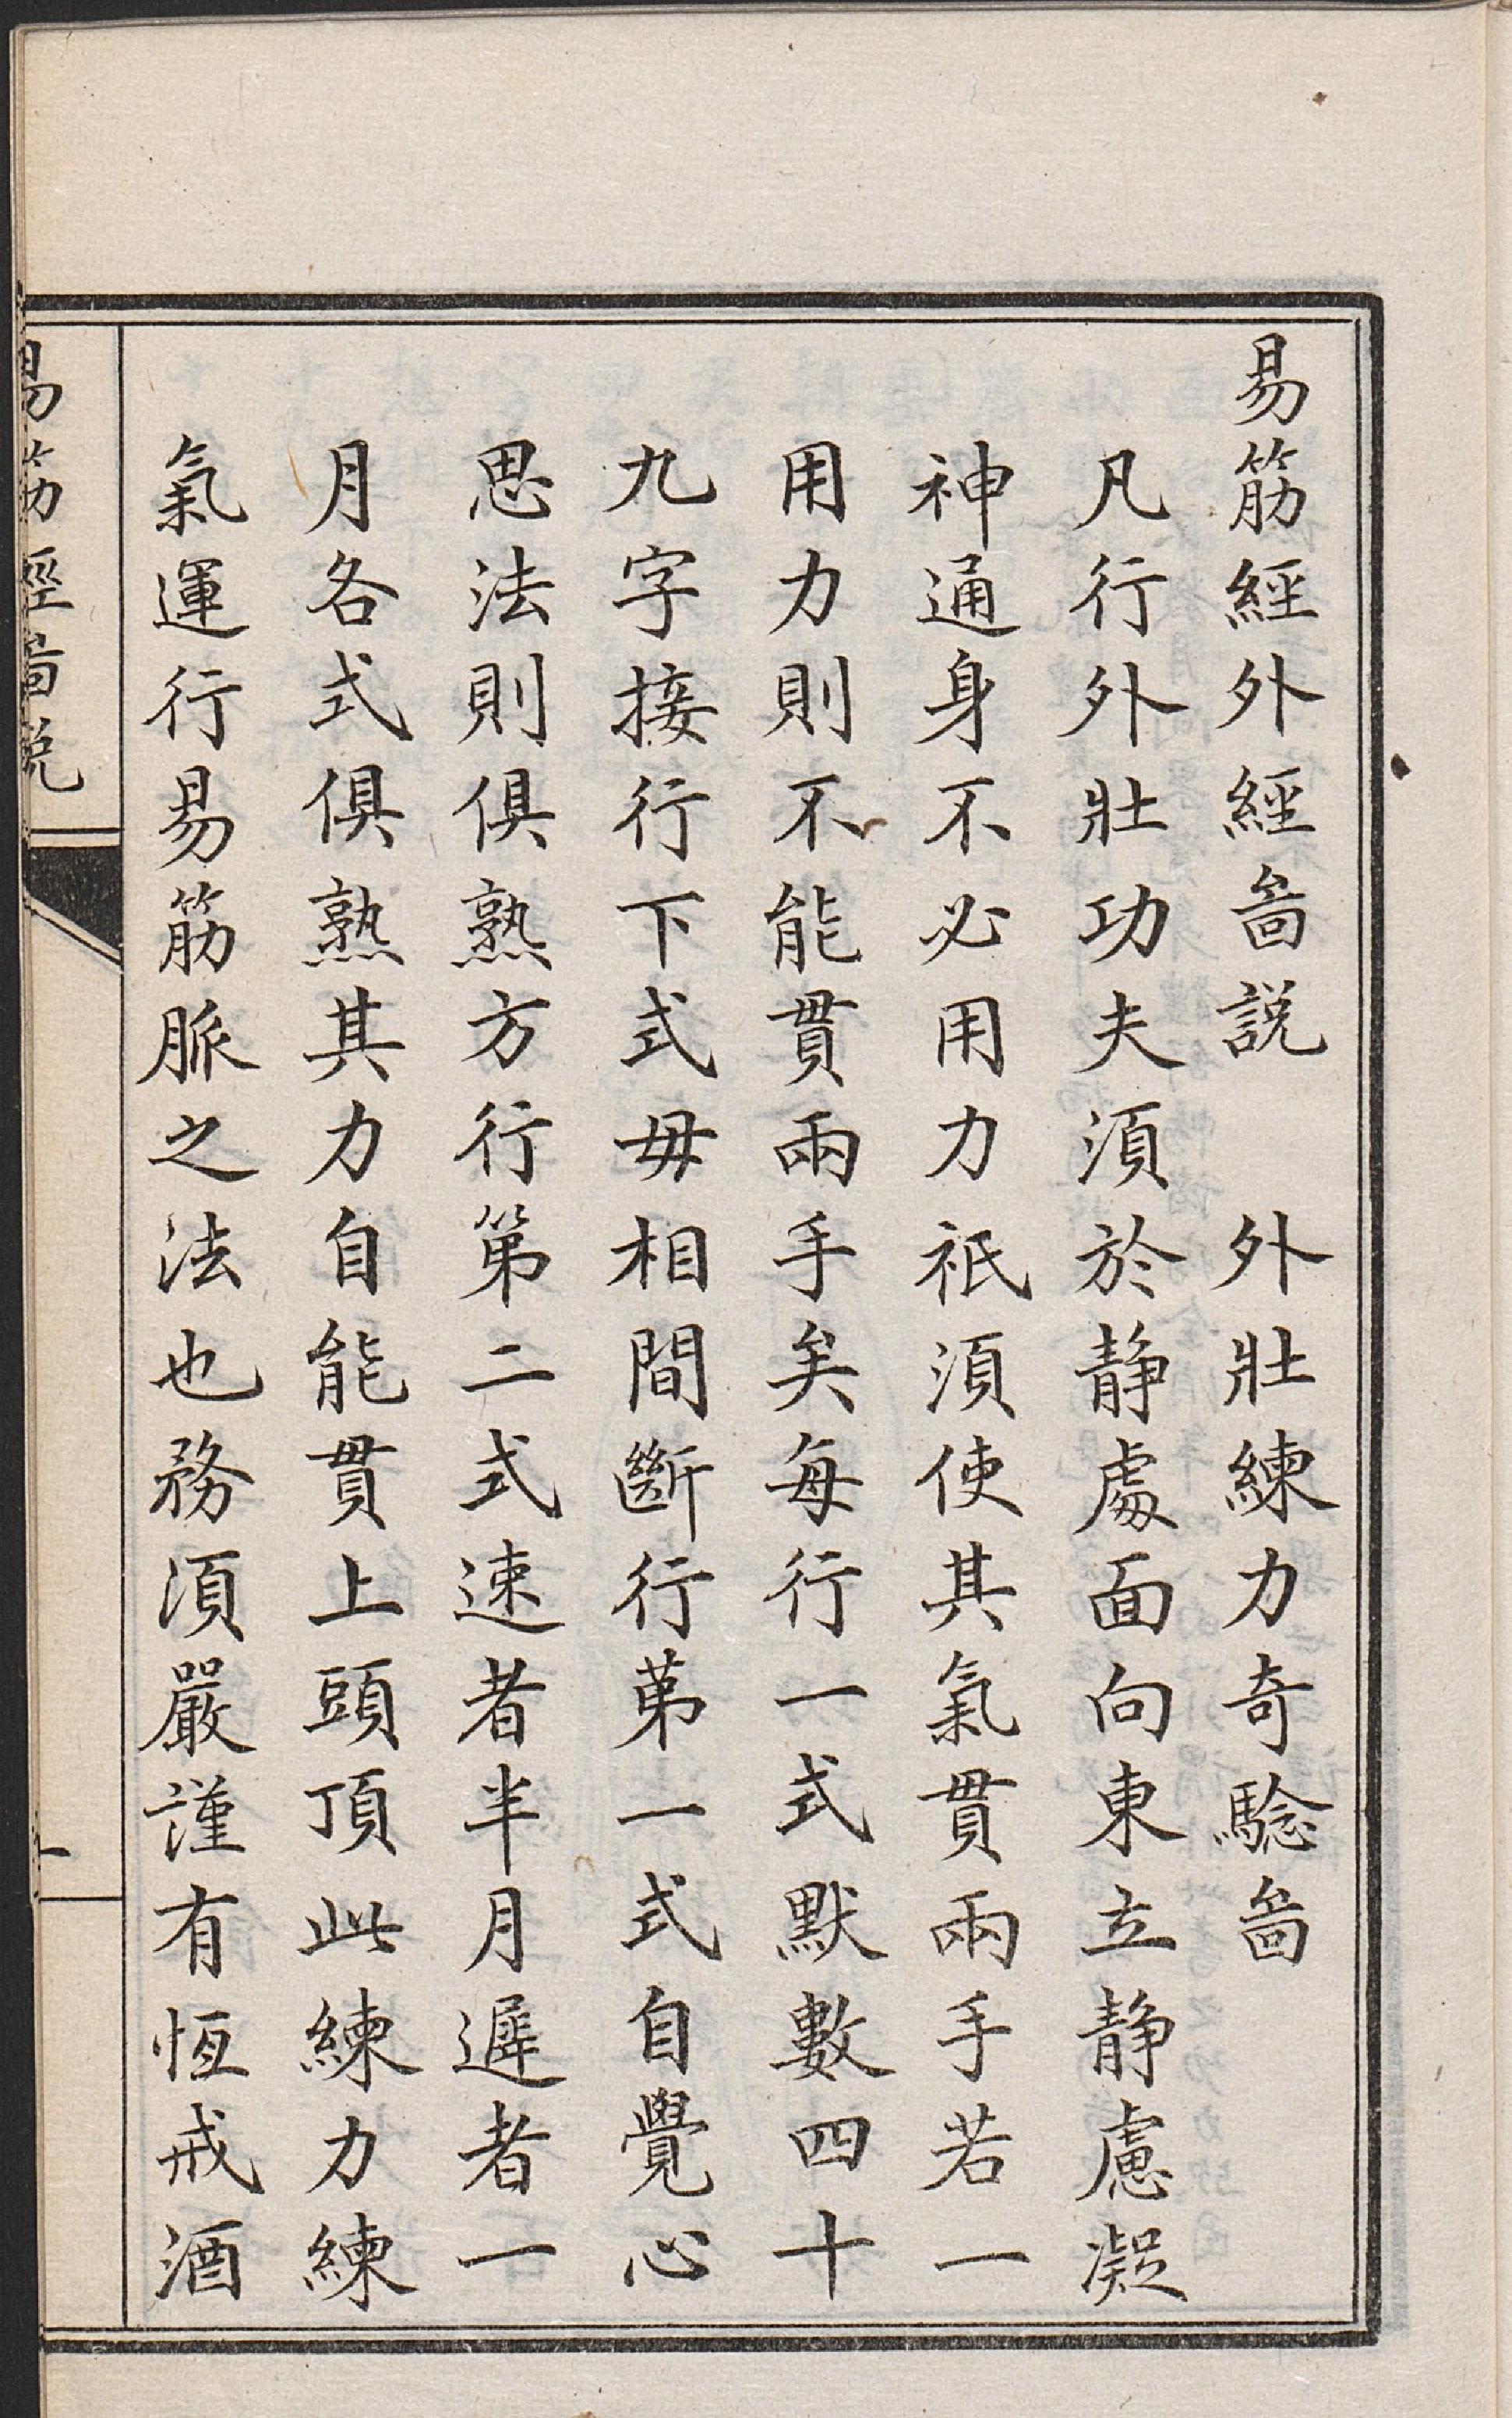 易筋經外經啚説　外壯練力奇騐啚
凡行外壯功夫須於静處面向東立静慮凝
神通身不必用力祇須使其氣貫兩手若一
用力則不能貫兩手矣每行一式默數四十
九字接行下式毋相間斷行苐一式自覺心
思法則俱熟方行第二式速者半月遲者一
月各式俱熟其力自能貫上頭頂此練力練
氣運行易筋脈之法也務須嚴謹有恆戒酒
易筋經啚説